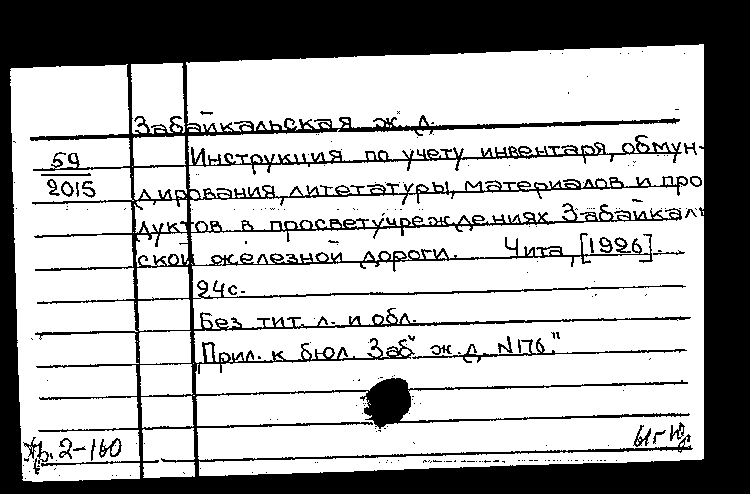 Забайкальская ж. д.
59
2015
Инструкция по учету инвентаря, обмун-
дирования, литетатуры, материалов и про
дуктов в просветучреждениях Забайкаль
ской железной дороги. Чита, [1926].
24с.
Без тит. л. и обл.
"Прил. к бюл. Заб" ж. д. N176."
2-160